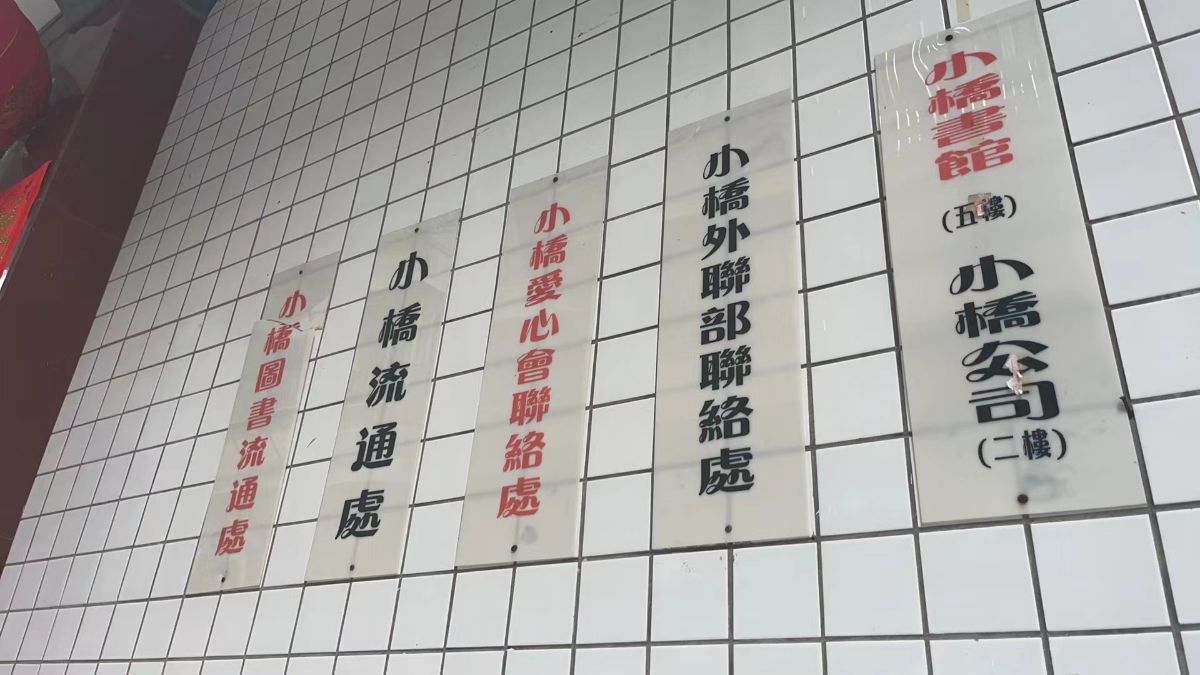 小橋書館
(五樓)
小橋公司
(二樓)
小橋外聯部聯絡處
小橋愛心會聯絡處
小橋流通處
小橋圖書流通處